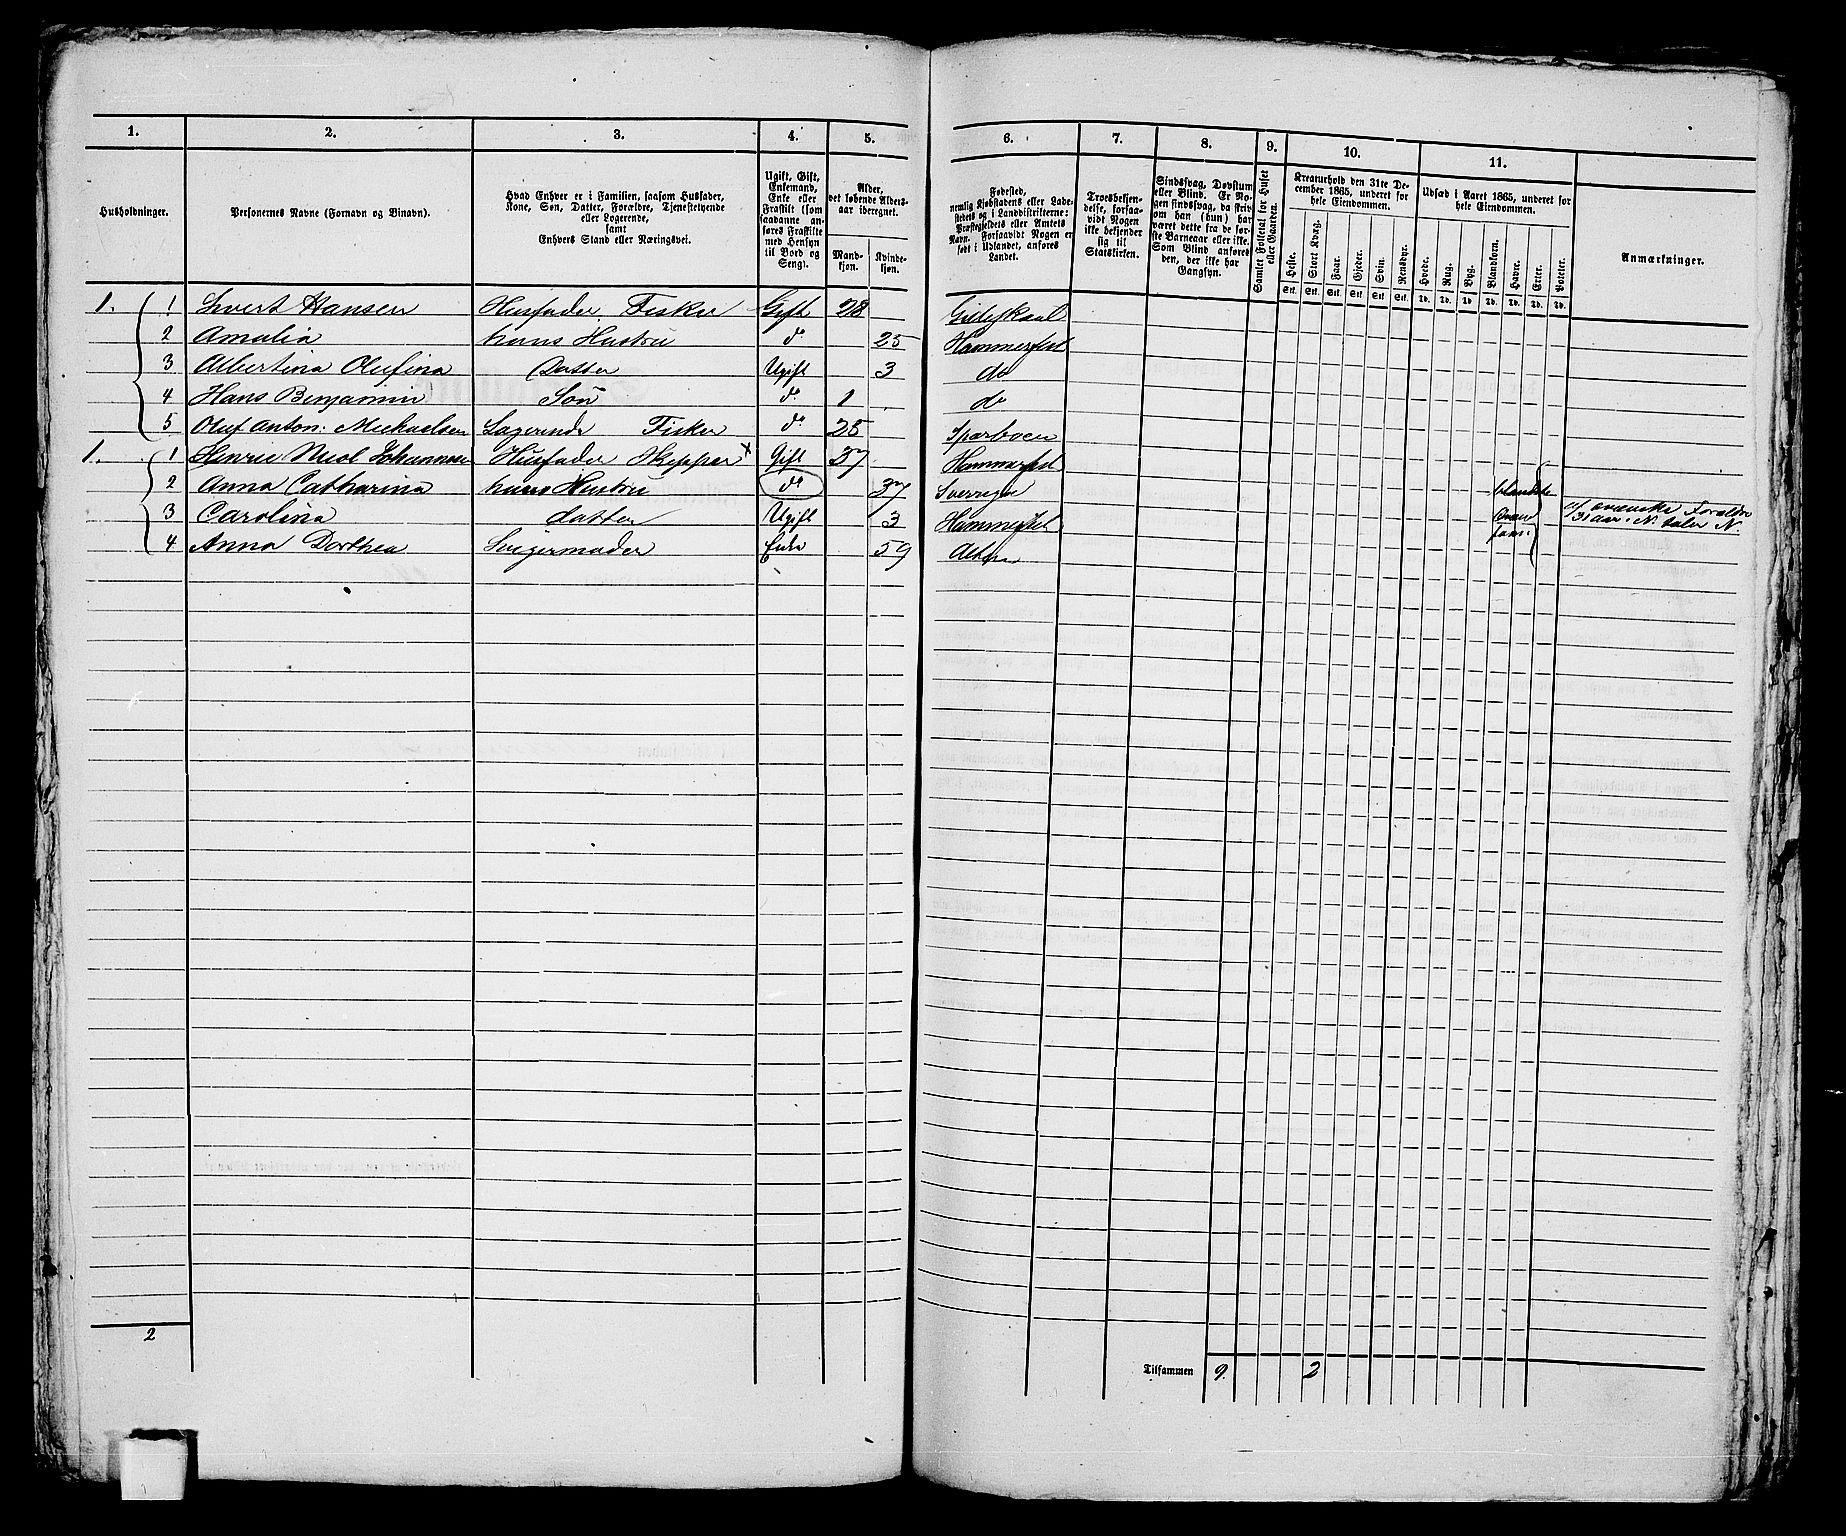 1. 2. 3. 4. 5. 6. 7. 8. 9. 10. 11.
Husholdninger.
Personernes Navne (Fornavn og Binavn).
Hvad Enhver er i Familien, saasom Husfader,
Kone, Søn, Datter, Forældre, Tjenestetyende
eller Logerende,
samt
Enhvers Stand eller Næringsvei.
Ugift, Gift,
Enkemand,
Enke eller
Fraskilt (som
saadanne an-
føres Fraskilte
med Hensyn
til Bord og
Seng).
Alder,
det løbende Alders-
aar iberegnet.
Mand-
kjøn.
Kvinde-
kjøn.
Fødested,
nemlig Kjøbstadens eller Lade-
stedets og i Landdistrikterne:
Præstegjeldets eller Amtets
Navn. Forsaavidt Nogen er
født i Udlandet, anføres
Landet.
Troesbekjen-
delse, forsaa-
vidt Nogen
ikke bekjender
sig til
Statskirken.
Sindssvag, Døvstum
eller Blind. Er No-
gen sindssvag, da skriv
om han (hun) har
været dette fra de før-
ste Barneaar eller ikke.
Som Blind anføres
den, der ikke har
Gangsyn.
Samlet Folketal for Huset
eller Gaarden.
Kreaturhold den 31te De-
cember 1865, underet for
hele Eiendommen.
Heste. Stort Kvæg. Faar. Gjeder. Svin. Rensdyr.
Stk. Stk. Stk. Stk. Stk. Stk.
Udsæd i Aaret 1865, underet for
hele Eiendommen.
Hvede. Rug. Byg. Blandkorn. Havre. Erter. Poteter.
Td. Td. Td. Td. Td. Td. Td.
Anmærkninger.
1. 1 Hansen Husfader Fisker Gift 28
2 Amalia hans Hustru do 25 Hammerfest
3 Albertina Olufina Datter Ugift 3 do
4 Hans Benjamin Søn do 1 do
5 Oluf Anton: Michaelsen Logerende Fisker do 25 Sparboen
1. 1 Nicol Johannesen Husfader Skipper x Gift 37 Hammerfest
2 Anna Catharina hans Hustru do 37 Sverrige blandede
3 Carolina datter Ugift 3 Hammerfest svenske Forældre
31 aar i N. taler N.
4 Anna Dorthea Svigermoder Enke 59 Alten
2
Tilsammen 9. 2